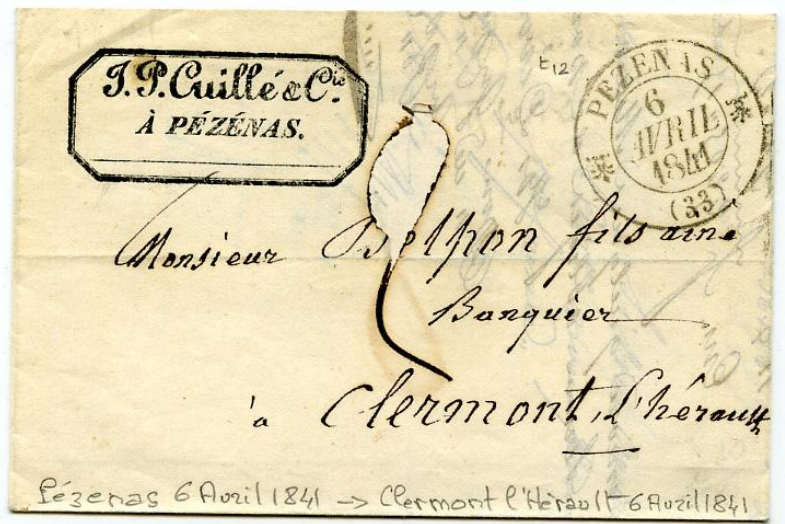 J. P. Cuillé & Cie.
À PÉZÉNAS.
t12
PEZENAS
6
AVRIL
1841
(33)
Monsieur Delpon fils ainé
Banquier
à Clermont, L'hérault
Pézenas 6 Avril 1841 -> Clermont l'Hérault 6 Avril 1841